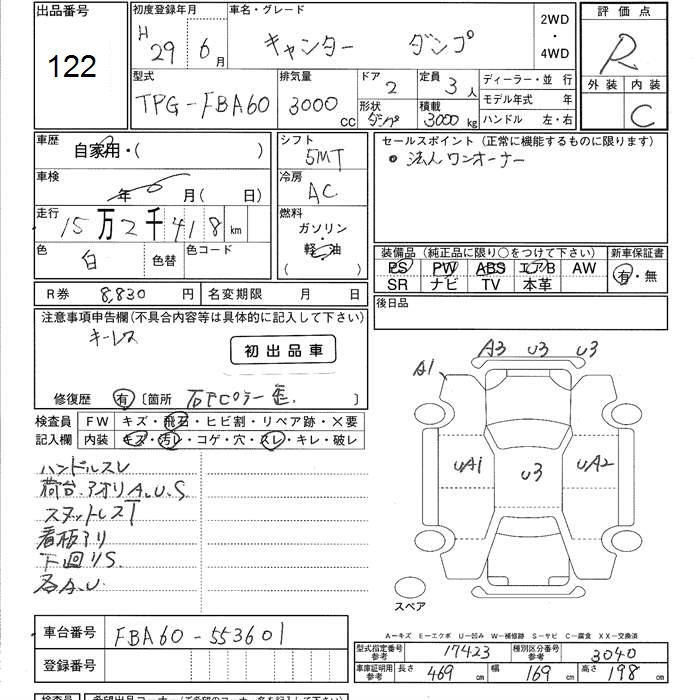 出品番号 122
初度登録年月 H 29年 6月
車名・グレード キャンター ダンプ
2WD・4WD
評価点 R
外装 内装 C
型式 TPG-FBA60
排気量 3000 CC
ドア 2
形状 ダンプ
定員 3 人
積載 3000 kg
ディーラー・並 行
モデル年式 年
ハンドル 左・右
車歴 自家用・( )
車検 年 月( 日)
走行 15万2千418 km
色 白 色替 色コード
シフト 5MT
冷房 AC
燃料 ガソリン・軽油 ( )
セールスポイント (正常に機能するものに限ります)
・法人ワンオーナー
装備品 (純正品に限り○をつけて下さい)
PS PW ABS エアB AW
SR ナビ TV 本革
新車保証書 有・無
後日品
R券 8,830 円 名変期限 月 日
注意事項申告欄(不具合内容等は具体的に記入して下さい)
キーレス
初出品車
修復歴 有 [箇所 ]
検査員記入欄
FW キズ・飛石・ヒビ割・リペア跡・×要
内装 キズ・汚レ・コゲ・穴・スレ・キレ・破レ
ハンドルスレ
荷台.アオリA.U.S
スタットレスT
看板アリ
下廻りS.
各A.U
A3 U3 U3
A1
UA1 U3 UA2
スペア
A－キズ E－エクボ U－凹み W－補修跡 S－サビ C－腐食 XX－交換済
車台番号 FBA60-553601
登録番号
型式指定番号参考 17423 種別区分番号参考 3040
車庫証明用参考 長さ 469 cm 幅 169 cm 高さ 198 cm